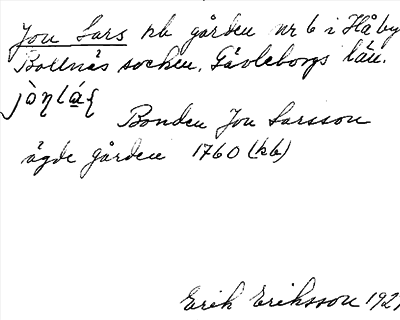 Jon Lars kb gården nr 6 i Håby
Bollnäs socken, Gävleborgs län.
Bonden Jon Larsson
ägde gården 1760 (kb)
Erik Eriksson 192